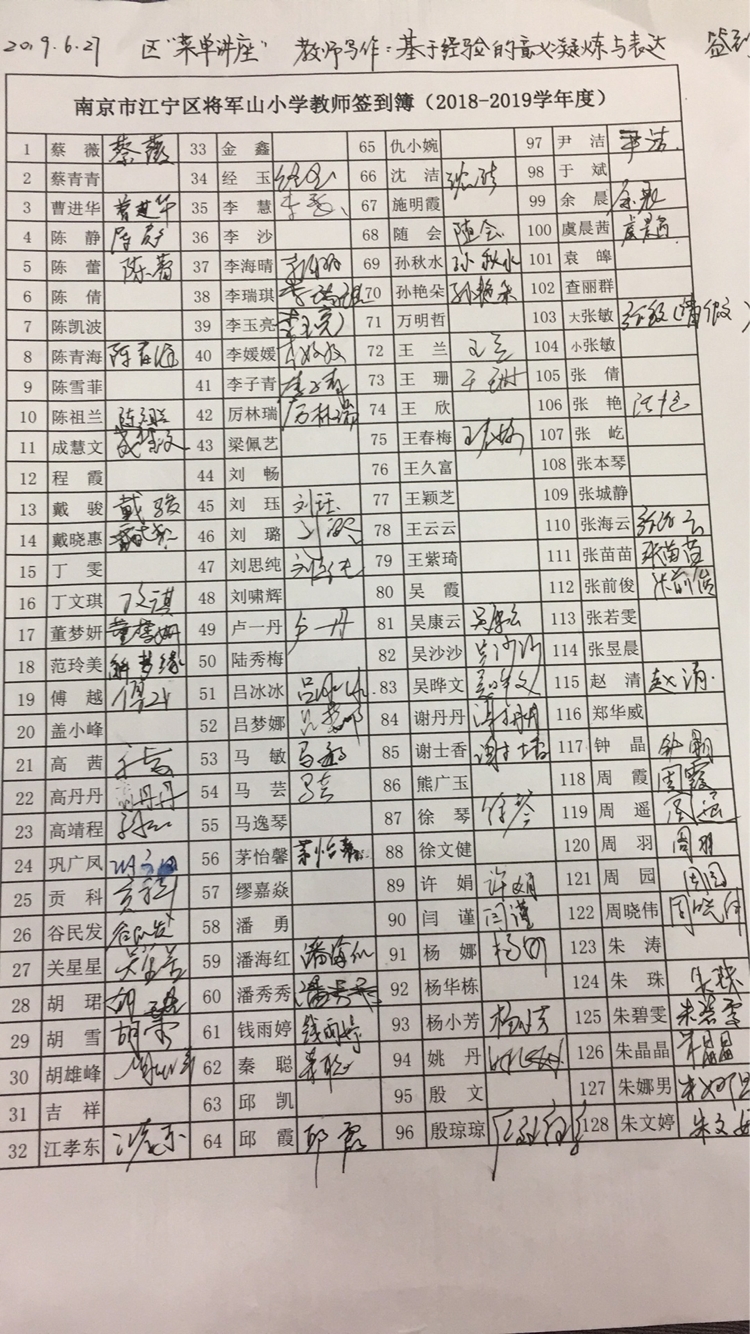 2019.6.27 区"菜单讲座" 教师写作：基于经验的意义凝炼与表达 签到
南京市江宁区将军山小学教师签到簿（2018-2019学年度）
1 蔡薇 蔡薇 33 金鑫 65 仇小婉 97 尹洁 尹洁
2 蔡青青 34 经玉 经玉 66 沈洁 沈洁 98 于斌
3 曹进华 曹进华 35 李慧 李慧 67 施明霞 99 余晨 余晨
4 陈静 陈静 36 李沙 68 随会 随会 100 虞晨茜 虞晨茜
5 陈蕾 陈蕾 37 李海晴 李海晴 69 孙秋水 孙秋水 101 袁皞
6 陈倩 38 李瑞琪 李瑞琪 70 孙艳朵 孙艳朵 102 查丽群
7 陈凯波 39 李玉亮 李玉亮 71 万明哲 103 大张敏 张敏(请假)
8 陈青海 陈青海 40 李媛媛 李媛媛 72 王兰 王兰 104 小张敏
9 陈雪菲 41 李子青 李子青 73 王珊 王珊 105 张倩
10 陈祖兰 陈祖兰 42 厉林瑞 厉林瑞 74 王欣 106 张艳 张艳
11 成慧文 成慧文 43 梁佩艺 75 王春梅 王春梅 107 张屹
12 程霞 44 刘畅 76 王久富 108 张本琴
13 戴骏 戴骏 45 刘珏 刘珏 77 王颖芝 109 张城静
14 戴晓惠 46 刘璐 刘璐 78 王云云 110 张海云 张海云
15 丁雯 47 刘思纯 刘思纯 79 王紫琦 111 张苗苗 张苗苗
16 丁文琪 丁文琪 48 刘啸辉 80 吴霞 112 张前俊 张前俊
17 董梦妍 董梦妍 49 卢一丹 卢一丹 81 吴康云 吴康云 113 张若雯
18 范玲美 50 陆秀梅 82 吴沙沙 吴沙沙 114 张昱晨
19 傅越 傅越 51 吕冰冰 吕冰冰 83 吴晔文 吴晔文 115 赵清 赵清
20 盖小峰 52 吕梦娜 吕梦娜 84 谢丹丹 谢丹丹 116 郑华威
21 高茜 高茜 53 马敏 马敏 85 谢士香 谢士香 117 钟晶 钟晶
22 高丹丹 高丹丹 54 马芸 马芸 86 熊广玉 118 周霞 周霞
23 高靖程 55 马逸琴 87 徐琴 徐琴 119 周遥 周遥
24 巩广凤 56 茅怡馨 茅怡馨 88 徐文健 120 周羽 周羽
25 贡科 贡科 57 缪嘉焱 89 许娟 许娟 121 周园 周园
26 谷民发 谷民发 58 潘勇 90 闫谨 闫谨 122 周晓伟 周晓伟
27 关星星 关星星 59 潘海红 潘海红 91 杨娜 杨娜 123 朱涛
28 胡珺 胡珺 60 潘秀秀 潘秀秀 92 杨华栋 124 朱珠 朱珠
29 胡雪 胡雪 61 钱雨婷 钱雨婷 93 杨小芳 杨小芳 125 朱碧雯 朱碧雯
30 胡雄峰 胡雄峰 62 秦聪 秦聪 94 姚丹 126 朱晶晶 朱晶晶
31 吉祥 63 邱凯 95 殷文 127 朱娜男 朱娜男
32 江孝东 江孝东 64 邱霞 邱霞 96 殷琼琼 128 朱文婷 朱文婷